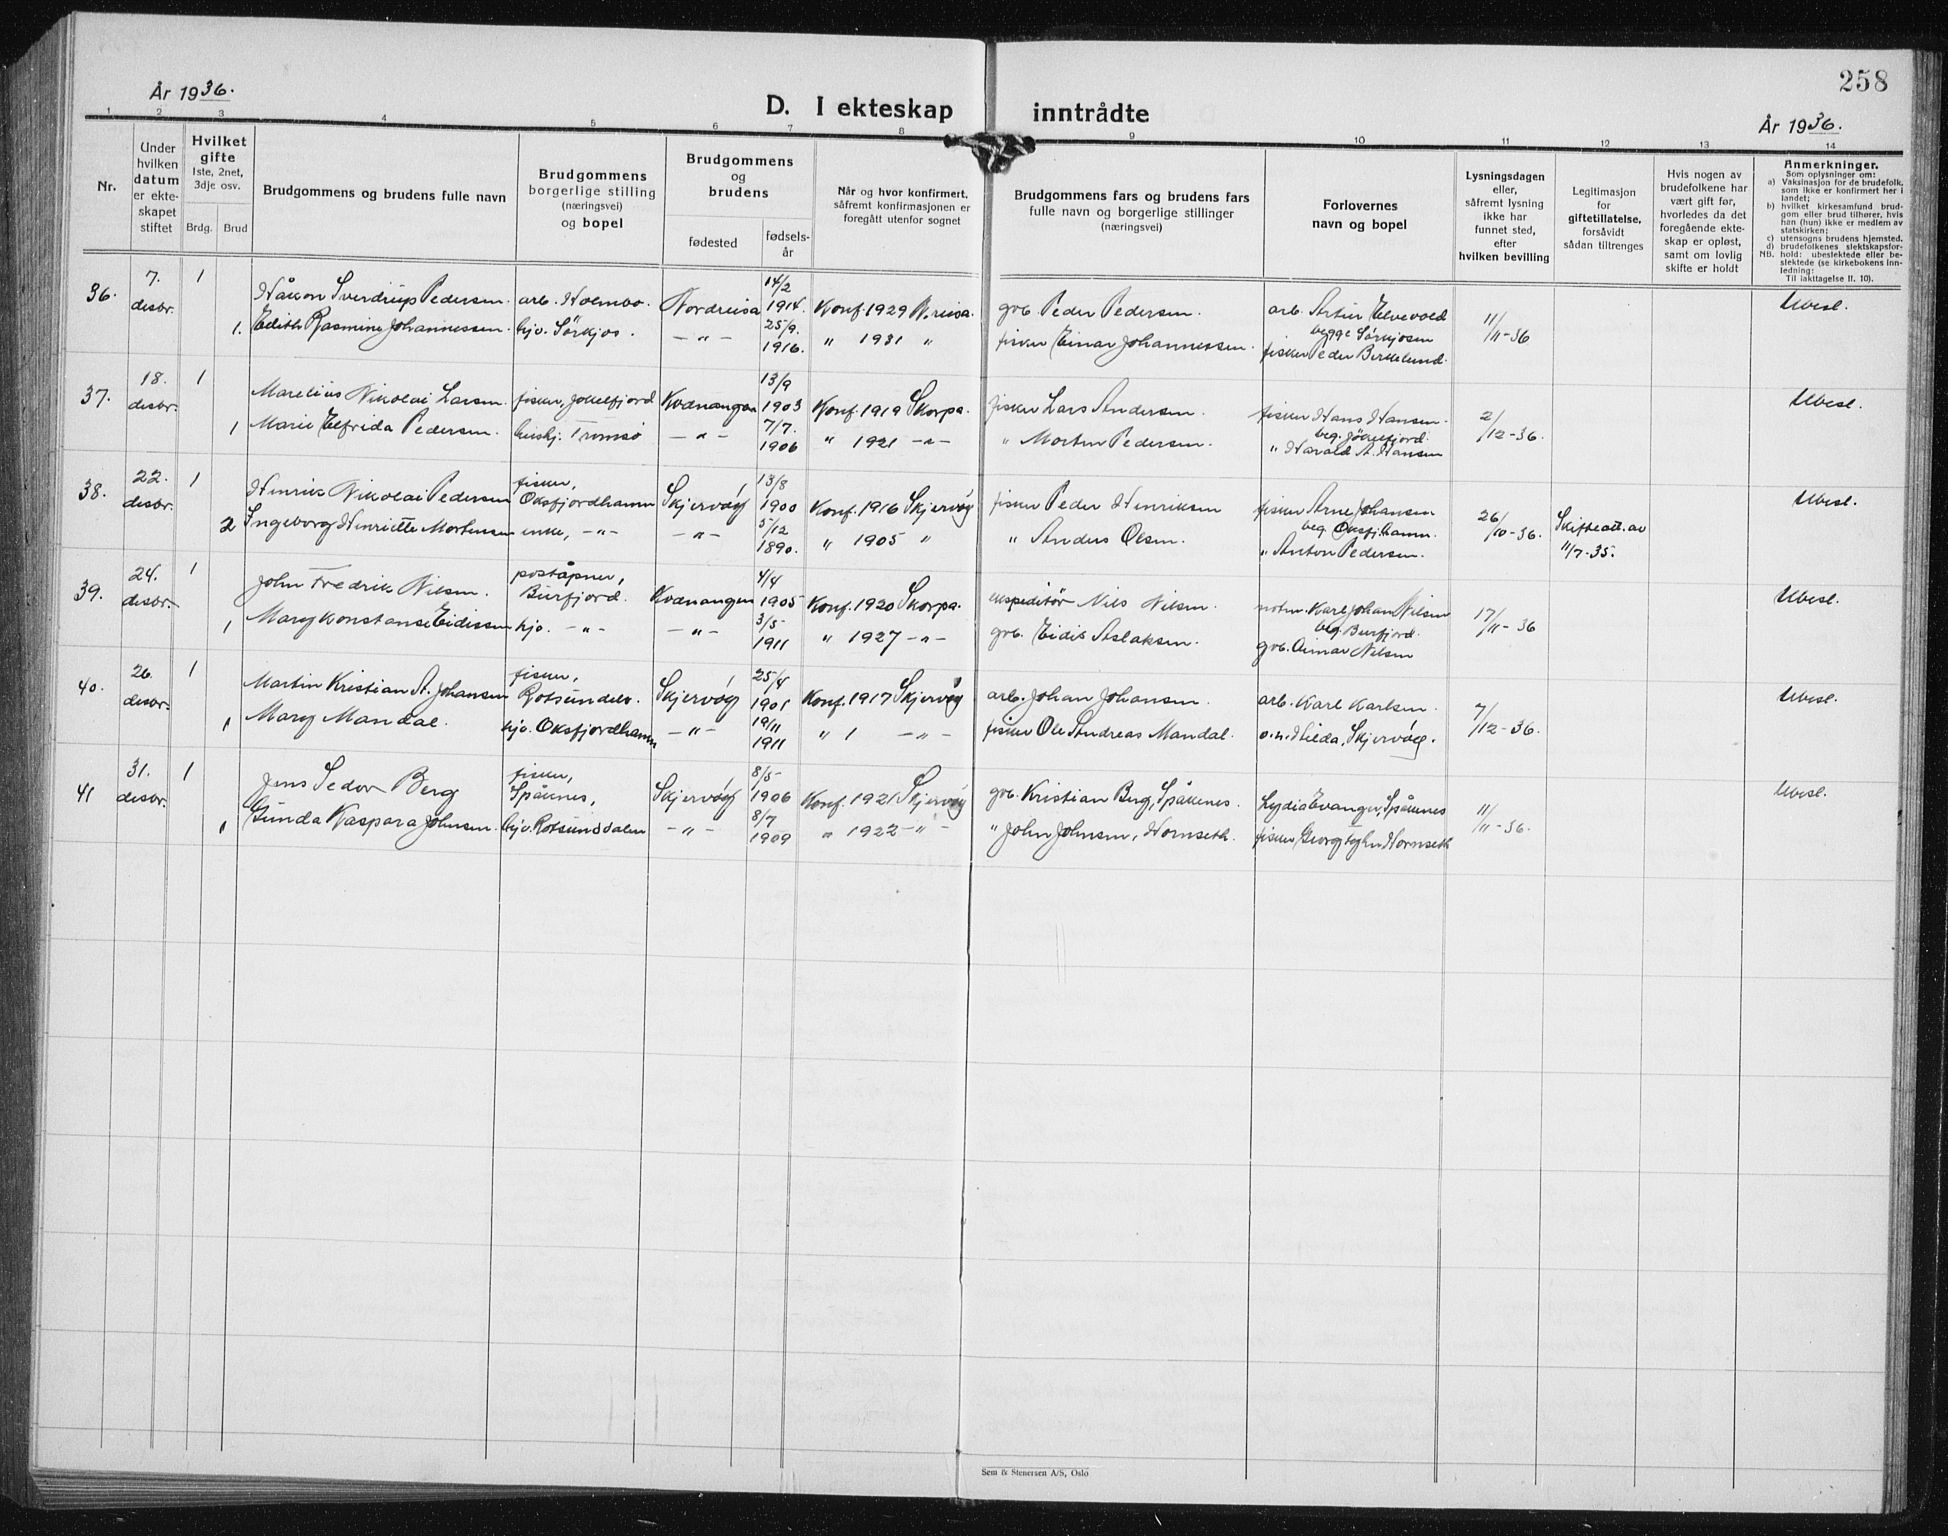 258
År 1936.
D. I ekteskap inntrådte
År 1936.
1 2 3 4 5 6 7 8 9 10 11 12 13 14
Nr.
Under hvilken datum er ekteskapet stiftet
Hvilket gifte
1ste, 2net, 3dje osv.
Brdg. Brud
Brudgommens og brudens fulle navn
Brudgommens borgerlige stilling (næringsvei) og bopel
Brudgommens og brudens
fødested
fødselsår
Når og hvor konfirmert, såfremt konfirmasjonen er foregått utenfor sognet
Brudgommens fars og brudens fars fulle navn og borgerlige stillinger (næringsvei)
Forlovernes navn og bopel
Lysningsdagen eller, såfremt lysning ikke har funnet sted, efter hvilken bevilling
Legitimasjon for giftetillatelse, forsåvidt sådan tiltrenges
Hvis nogen av brudefolkene har vært gift før, hvorledes da det foregående ekteskap er opløst, samt om lovlig skifte er holdt
Anmerkninger.
Som oplysninger om:
a) Vaksinasjon for de brudefolk, som ikke er konfirmert her i landet;
b) hvilket kirkesamfund brudgom eller brud tilhører, hvis han (hun) ikke er medlem av statskirken;
c) utensogns brudens hjemsted.
d) brudefolkenes slektskapsforhold: ubeslektede eller beslektede (se kirkebokens innledning:
NB. Til iakttagelse II. 10).
36. 7. desbr. 1 Håkon Sverdrup Pedersen arb. Holmbo. Nordreisa 14/2 1914. Konf. 1929 N.reisa. grb. Peder Pedersen. arb. Artur Elvevold 11/11-36 Ubesl.
1. Edith Rasmine Johannessen hjv. Sørkjos. -"- 25/9. 1916. " 1931 " fisker Einar Johannessen. begge Sørkjosen fisker Peder Birkelund.
37. 18. desbr. 1 Marelius Nikolai Larsen fisker, Jøkelfjord Kvænangen 13/9 1903 Konf. 1919 Skorpa. fisker Lars Andersen. fisker Hans Hansen 2/12-36. Ubesl.
1 Marie Elfrida Pedersen. hushj. Tromsø -"- 7/7. 1906 " 1921 -"- " Morten Pedersen. beg. Jøkelfjord. " Harald A. Hansen
38. 22. desbr. 1 Henrik Nikolai Pedersen fisker, Oksfjordhamn Skjervøy 13/8 1900 Konf. 1916 Skjervøy fisker Peder Henriksen fisker Arne Johansen 26/10-36. Skifteatt. av 11/7-35. Ubesl.
2 Ingeborg Henriette Mortensen enke, -"- -"- 5/12 1890. " 1905 " " Anders Olsen. beg. Oksfj.hamn. " Anton Pedersen.
39. 24. desbr. 1 John Fredrik Nilsen. poståpner, Burfjord. Kvænangen 4/4 1905 Konf. 1920 Skorpa. ekspeditør Nils Nilsen. notm. Karl Johan Nilsen 17/11-36 Ubesl.
1 Mary Konstanse Eidissen hjv. -"- -"- 3/5 1911 " 1927 -"- grb. Eidis Aslaksen. beg. Burfjord. grb. Einar Nilsen
40. 26. desbr. 1 Martin Kristian A. Johansen fisker, Rotsundelv. Skjervøy 25/4 1901 Konf. 1917 Skjervøy arb. Johan Johansen. arb. Karl Karlsen. 7/12-36. Ubesl.
1 Mary Mandal. hjv. Oksfjordhamn -"- 19/11 1911 " 1 -"- fisker Ole Andreas Mandal. o.h. Hilda, Skjervøy.
41 31. desbr. 1 Jens Sedov Berg fisker, Spåknes, Skjervøy 8/5 1906 Konf. 1921 Skjervøy grb. Kristian Berg, Spåkenes. Lydia Evanger, Spåknes 11/11-36. Ubesl.
1 Gunda Kaspara Johnsen. hjv. Rotsunddalen -"- 8/7 1909 " 1922 -"- " John Johnsen, Hornseth. fisker Georg Hornseth
Sem & Stenersen A/S, Oslo